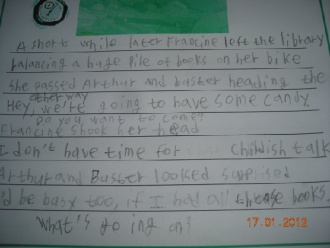 A short while later Francine left the library
balancing a huge pile of books on her bike
She passed Arthur and buster heading the
other way
Hey, we're going to have some candy
Do you want to come?
Francine shook her head
I don't have time for childish talk
Arthur and Buster looked surprised
I'd be busy too, if I had all those books.
What's going on?
17-01-2012